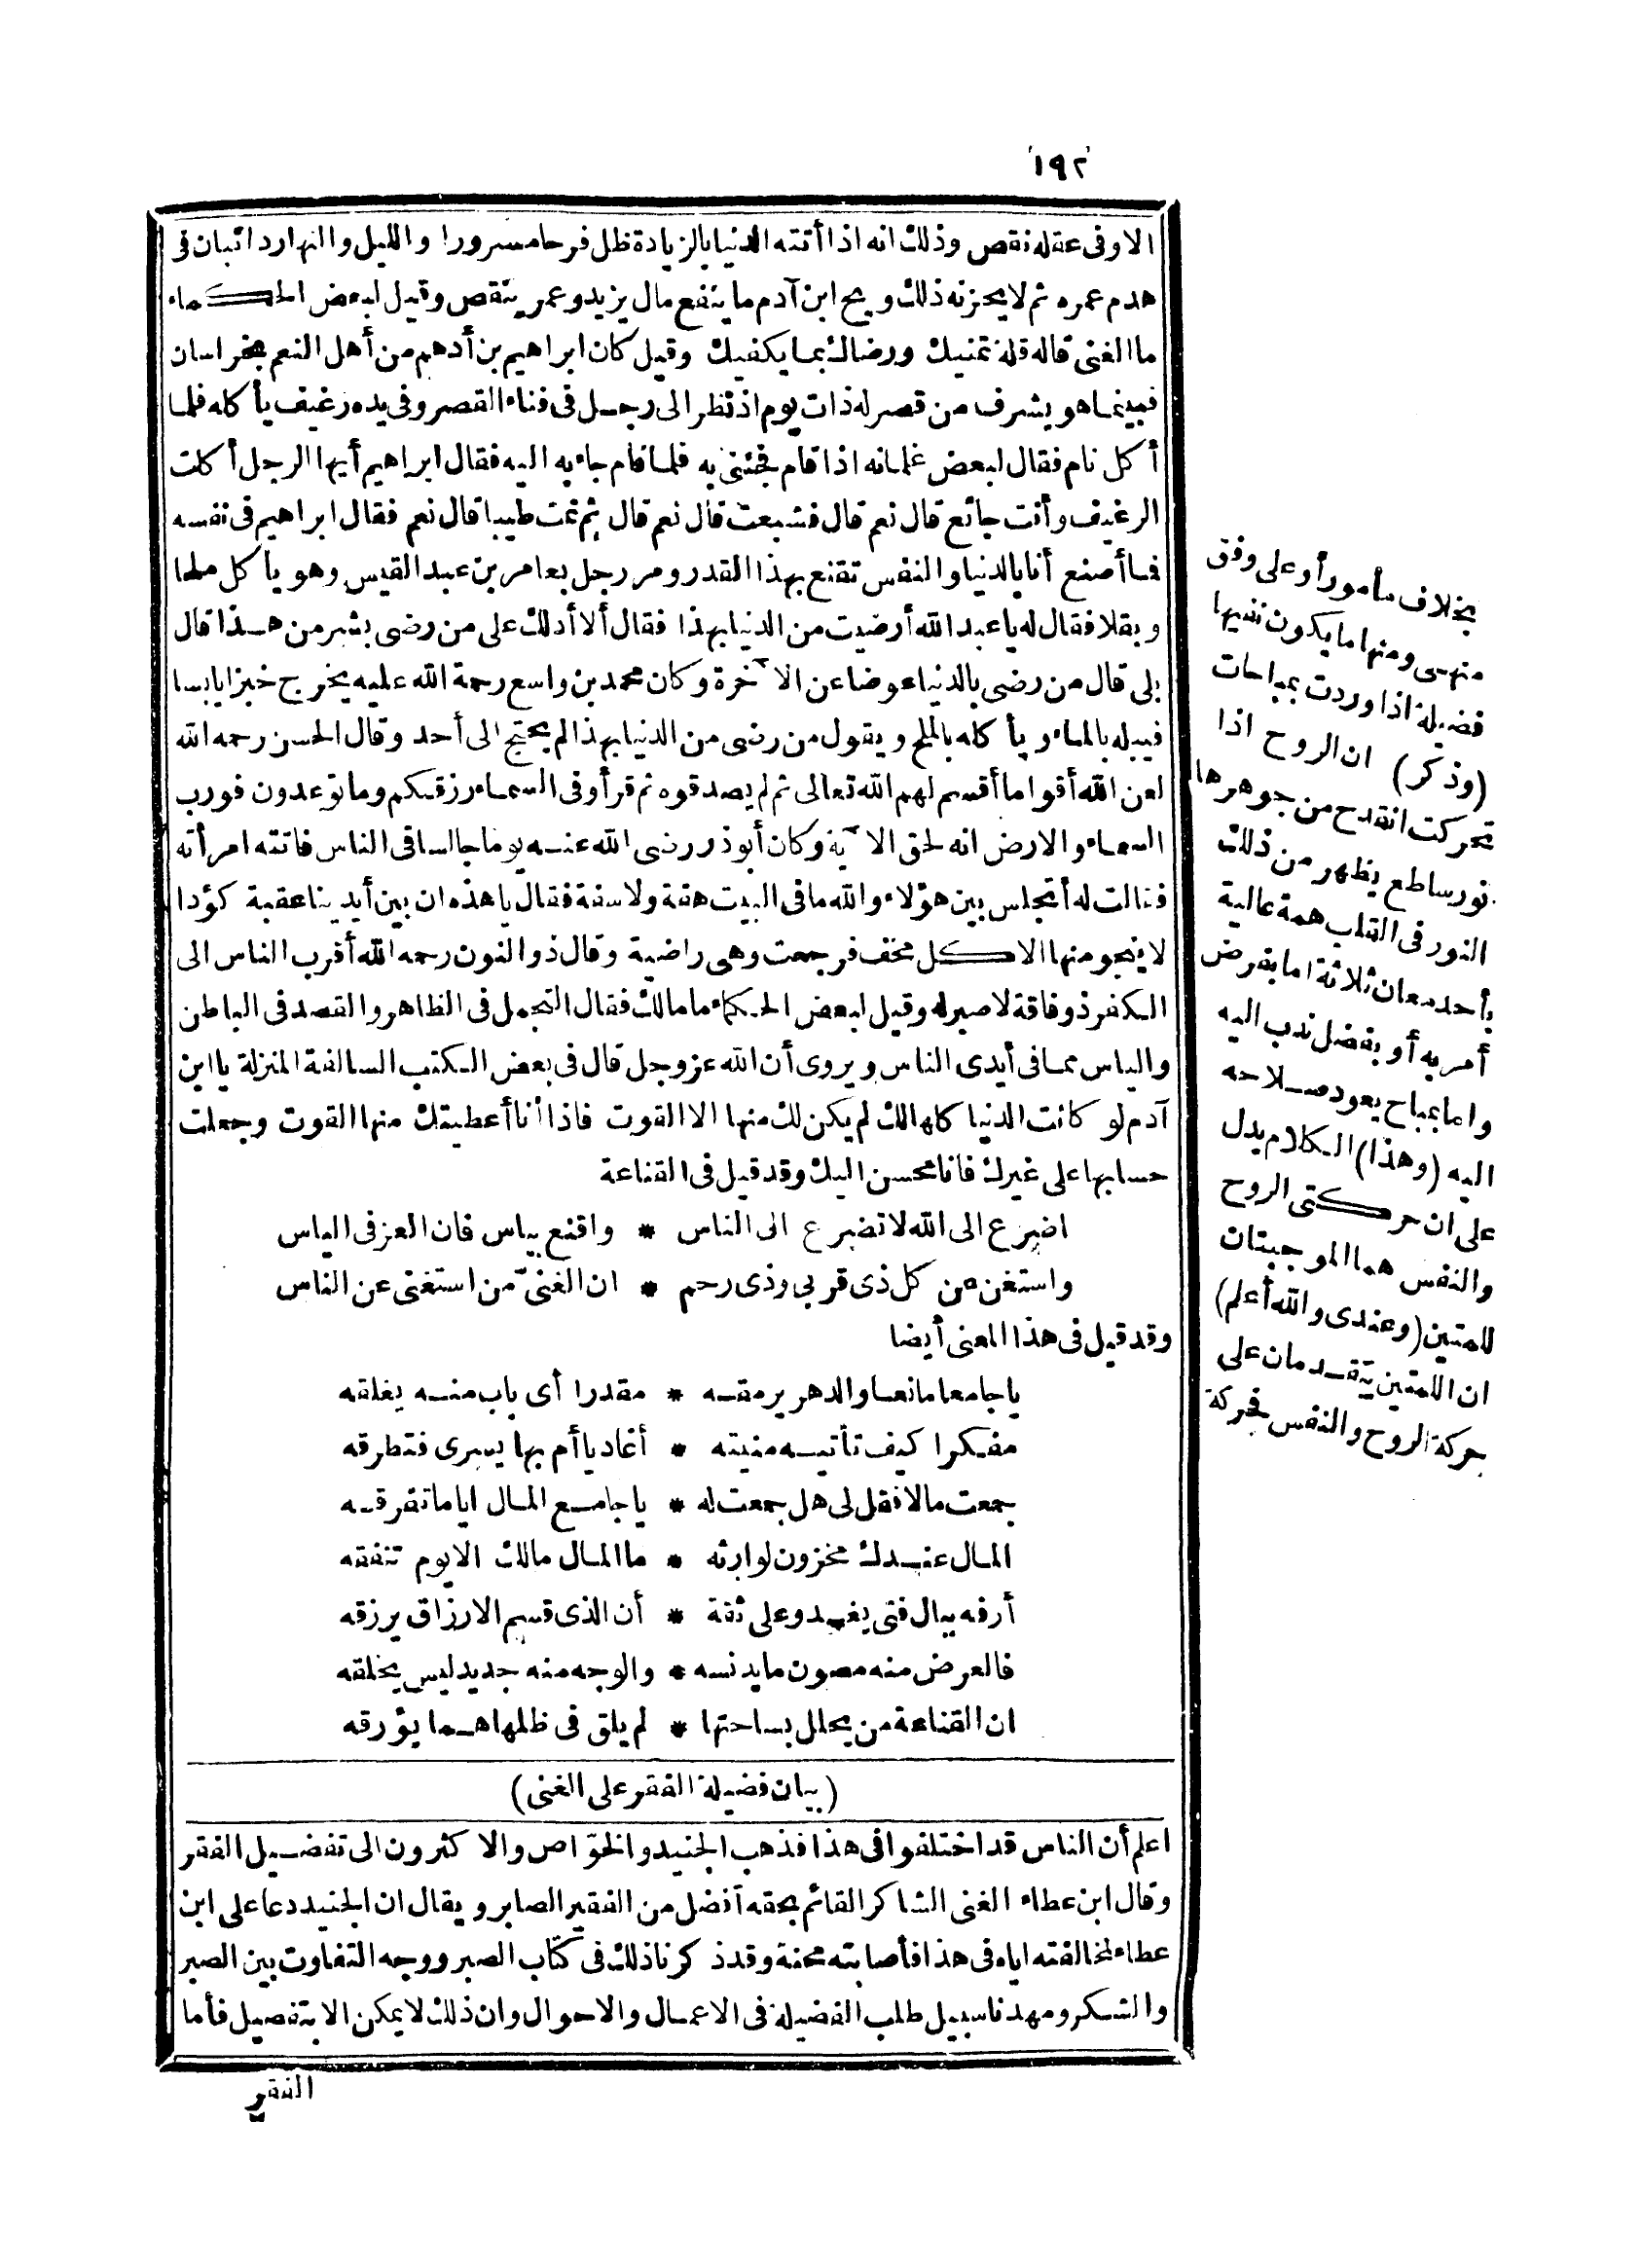 ١٩٢
الاوفى عقله نقص وذلك انه اذا أتته الدنيا بالزيادة ظل فرحا مسرورا والليل والنهار دائبان فى
هدم عمره ثم لا يحزنه ذلك ويح ابن آدم ما ينفع مال يزيد وعمر ينقص وقيل لبعض الحكماء
ما الغنى قال قلة تمنيك ورضاك بما يكفيك وقيل كان ابراهيم بن أدهم من أهل النعم بخراسان
فبينما هو يشرف من قصر له ذات يوم اذ نظر الى رجل فى فناء القصر وفى يده رغيف يأكله فلما
أكل نام فقال لبعض غلمانه اذا قام فجئنى به فلما قام جاء به اليه فقال ابراهيم أيها الرجل أكلت
الرغيف وأنت جائع قال نعم قال فشبعت قال نعم قال ثم نمت طيبا قال نعم فقال ابراهيم فى نفسه
فما أصنع أنا بالدنيا والنفس تقنع بهذا القدر ومر رجل بعامر بن عبد القيس وهو يأكل ملحا
وبقلا فقال له يا عبد الله أرضيت من الدنيا بهذا فقال ألا أدلك على من رضى بشر من هذا قال
بلى قال من رضى بالدنيا عوضا عن الآخرة وكان محمد بن واسع رحمة الله عليه يخرج خبزا يابسا
فيبله بالماء ويأكله بالملح ويقول من رضى من الدنيا بهذا لم يحتج الى أحد وقال الحسن رحمه الله
لعن الله أقواما أقسم لهم الله تعالى ثم لم يصدقوه ثم قرأ وفى السماء رزقكم وما توعدون فورب
السماء والارض انه لحق الآية وكان أبوذر رضى الله عنه يوما جالسا فى الناس فاتته امرأته
فقالت له أتجلس بين هؤلاء والله ما فى البيت هفة ولا سفة فقال يا هذه ان بين أيدينا عقبة كؤدا
لا ينجو منها الا كل مخف فرجعت وهى راضية وقال ذو النون رحمه الله أقرب الناس الى
الكفر ذو فاقة لا صبر له وقيل لبعض الحكماء ما مالك فقال التجمل فى الظاهر والقصد فى الباطن
والياس مما فى أيدى الناس ويروى أن الله عز وجل قال فى بعض الكتب السالفة المنزلة يا ابن
آدم لو كانت الدنيا كلها لك لم يكن لك منها الا القوت فاذا أنا أعطيتك منها القوت وجعلت
حسابها على غيرك فانا محسن اليك وقد قيل فى القناعة
اضرع الى الله لا تضرع الى الناس * واقنع بياس فان العز فى الياس
واستغن عن كل ذى قربى وذى رحم * ان الغنىّ من استغنى عن الناس
وقد قيل فى هذا المعنى أيضا
يا جامعا مانعا والدهر يرمقه * مقدرا أى باب منه يغلقه
مفكرا كيف تأتيه منيته * أغاديا أم بها يسرى فتطرقه
جمعت مالا فقل لى هل جمعت له * يا جامع المال اياما تفرقه
المال عندك مخزون لوارثه * ما المال مالك الا يوم تنفقه
أرفه ببال فتى يغدو على ثقة * أن الذى قسم الارزاق يرزقه
فالعرض منه مصون ما يدنسه * والوجه منه جديد ليس يخلقه
ان القناعة من يحلل بساحتها * لم يلق فى ظلها هما يؤرقه
(بيان فضيلة الفقر على الغنى)
اعلم أن الناس قد اختلفوا فى هذا فذهب الجنيد والخوّاص والاكثرون الى تفضيل الفقر
وقال ابن عطاء الغنى الشاكر القائم بحقه أفضل من الفقير الصابر ويقال ان الجنيد دعا على ابن
عطاء لمخالفته اياه فى هذا فأصابته محنة وقد ذكرنا ذلك فى كتاب الصبر ووجه التفاوت بين الصبر
والشكر ومهدنا سبيل طلب الفضيلة فى الاعمال والاحوال وان ذلك لا يمكن الا بتفصيل فأما
الفقر
بخلاف مأمور أو على وفق
منهى ومنها ما يكون نفيها
فضيلة اذا وردت بمباحات
(وذكر) ان الروح اذا
تحركت انقدح من جوهرها
نور ساطع يظهر من ذلك
النور فى القلب همة عالية
بأحد معان ثلاثة اما بفرض
أمر به أو بفضل ندب اليه
واما بمباح يعود صلاحه
اليه (وهذا) الكلام يدل
على ان حركتى الروح
والنفس هما الموجبتان
للمتين (وعندى والله أعلم)
ان اللمتين يتقدمان على
حركة الروح والنفس فحركة